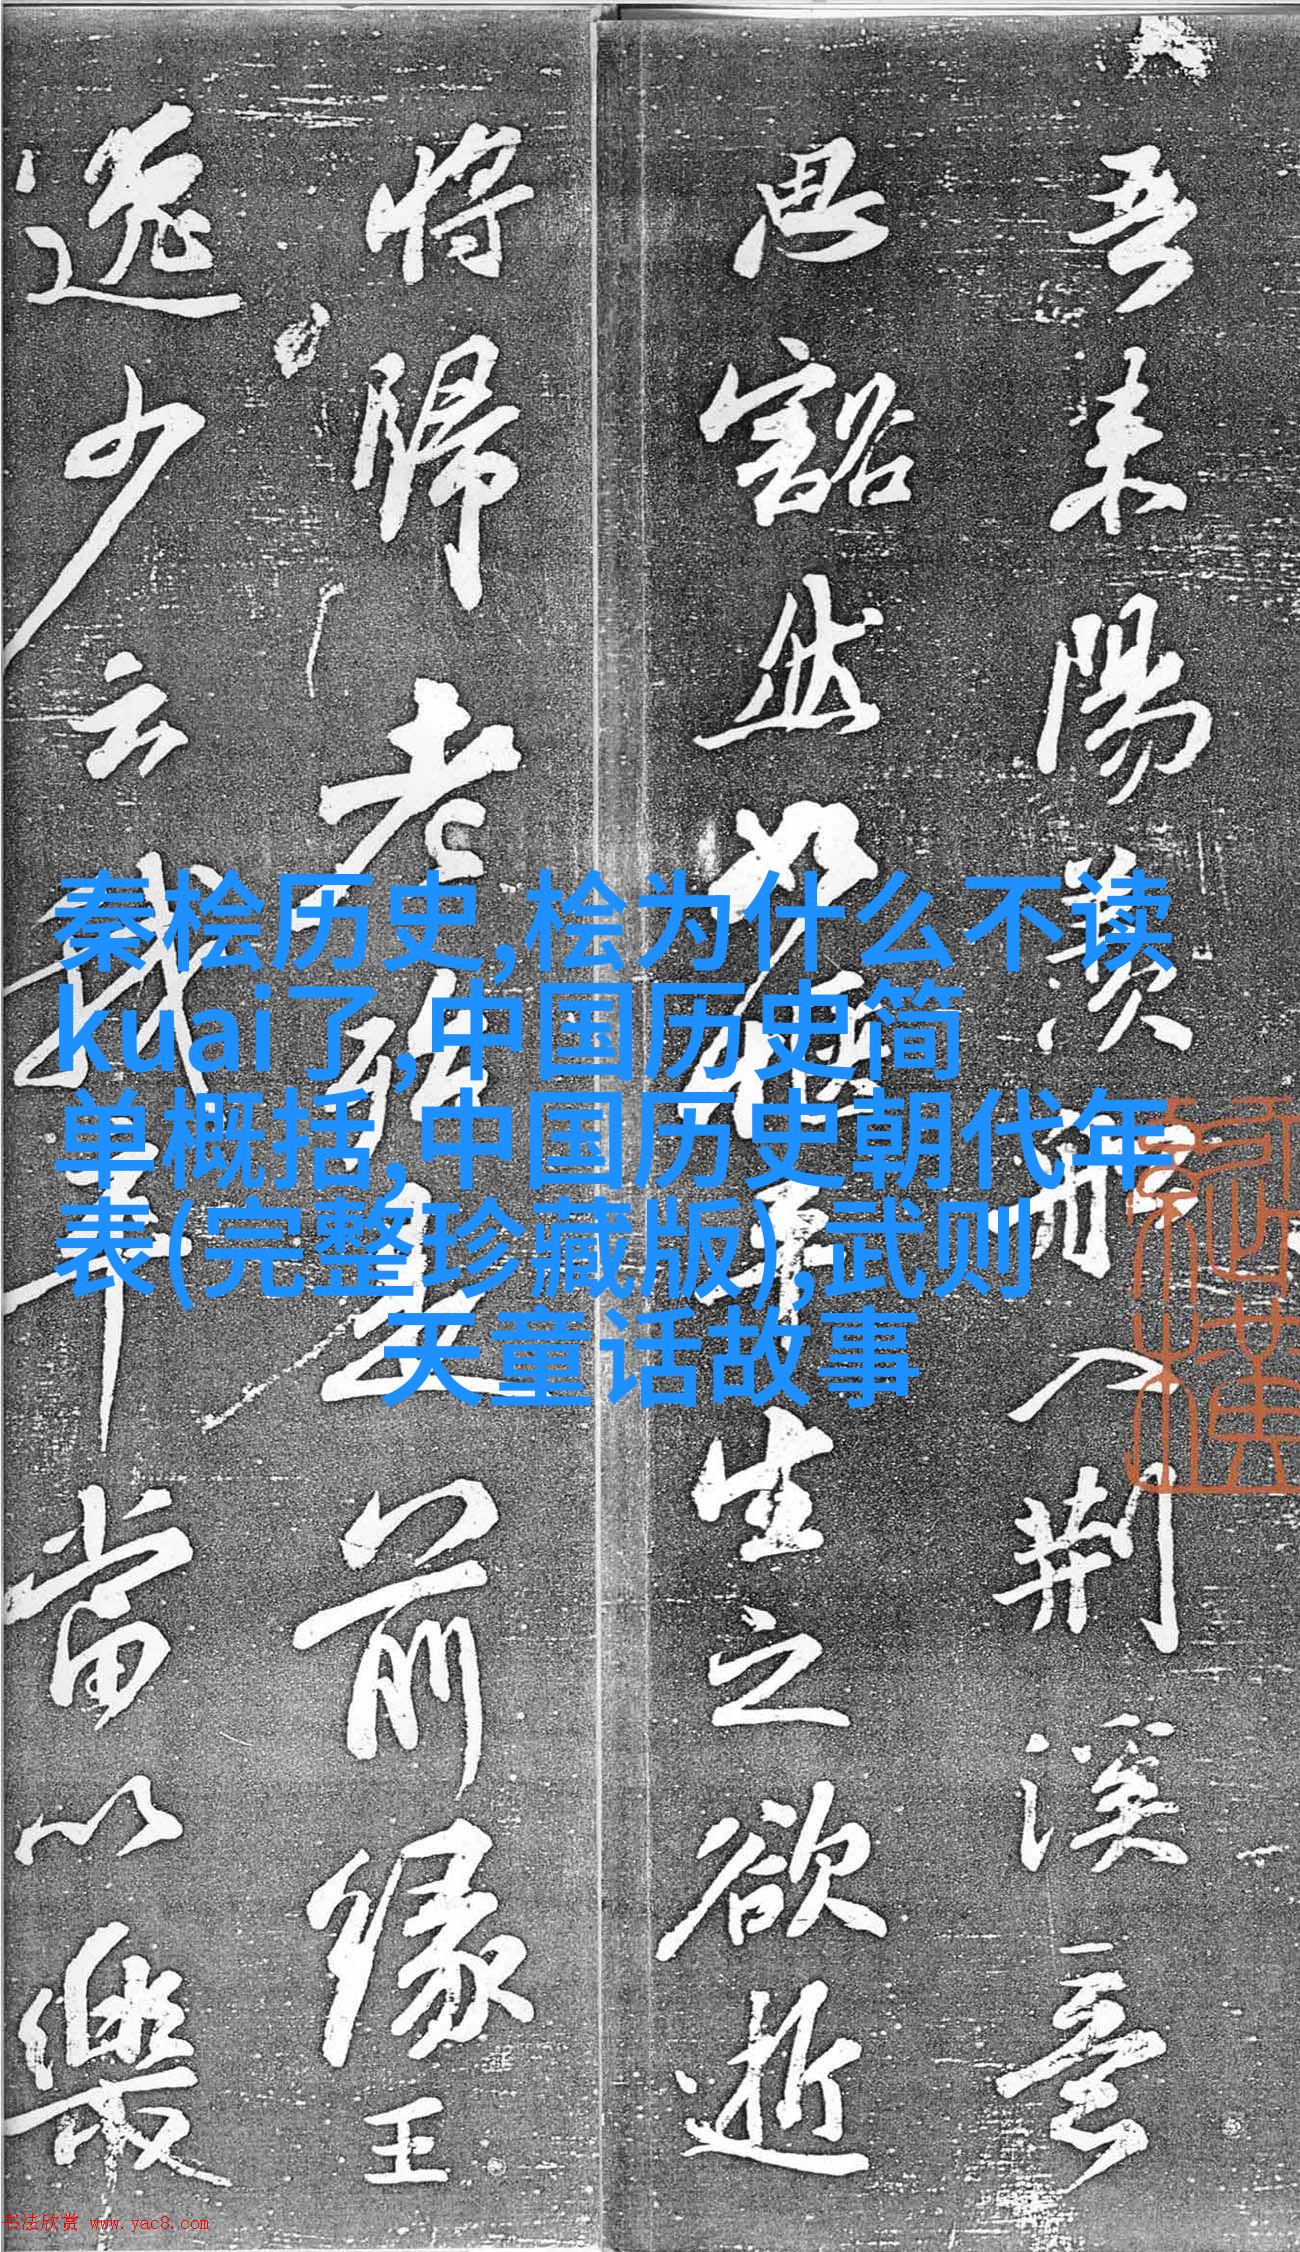 吾来陽羨船入荆溪意
思豁然如惬平生之欲逝
将歸老殆是前缘王
逸少云我卒當以樂
秦桧历史,桧为什么不读
kuai了,中国历史简
单概括,中国历史朝代年
表(完整珍藏版),武则
天童话故事
书法欣赏 www.yac8.com